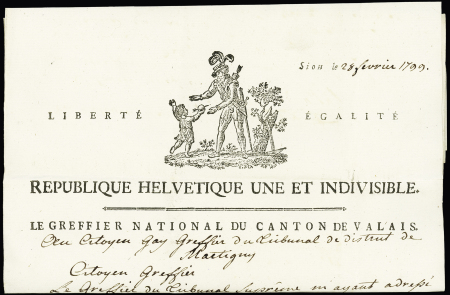 Sion le 28 fevrier 1799.
LIBERTÉ ÉGALITÉ
REPUBLIQUE HELVETIQUE UNE ET INDIVISIBLE.
LE GREFFIER NATIONAL DU CANTON DE VALAIS.
Au Citoyen Gay Greffier du Tribunal de district de
Martigny
Citoyen Greffier
Le Greffier du Tribunal Suprême en ayant adressé